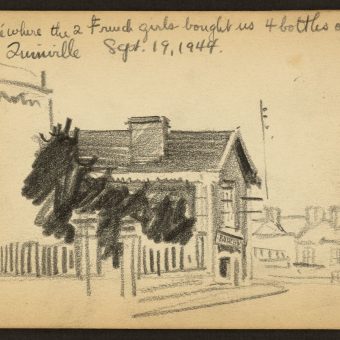 where the 2 French girls bought us 4 bottles o
Quinville Sept. 19, 1944.